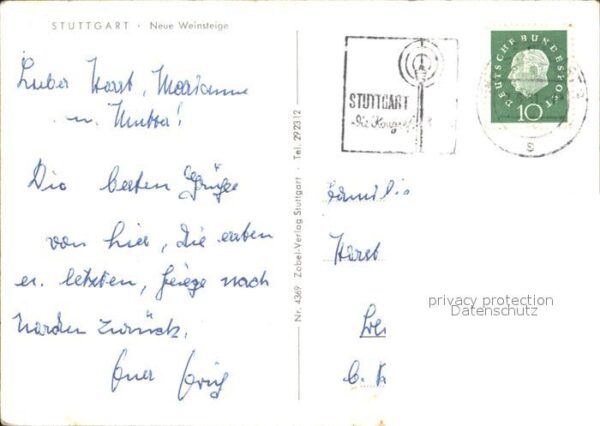 STUTTGART · Neue Weinsteige
Lieber Horst, Marianne
u. Mutta!
Die besten Grüße
von hier, die ersten
u. letzten, fliege nach
Norden zurück.
Euer
Nr. 4369 Zobel-Verlag Stuttgart · Tel. 292312
STUTTGART
DEUTSCHE BUNDESPOST
10
Familie
Horst
privacy protection
Datenschutz